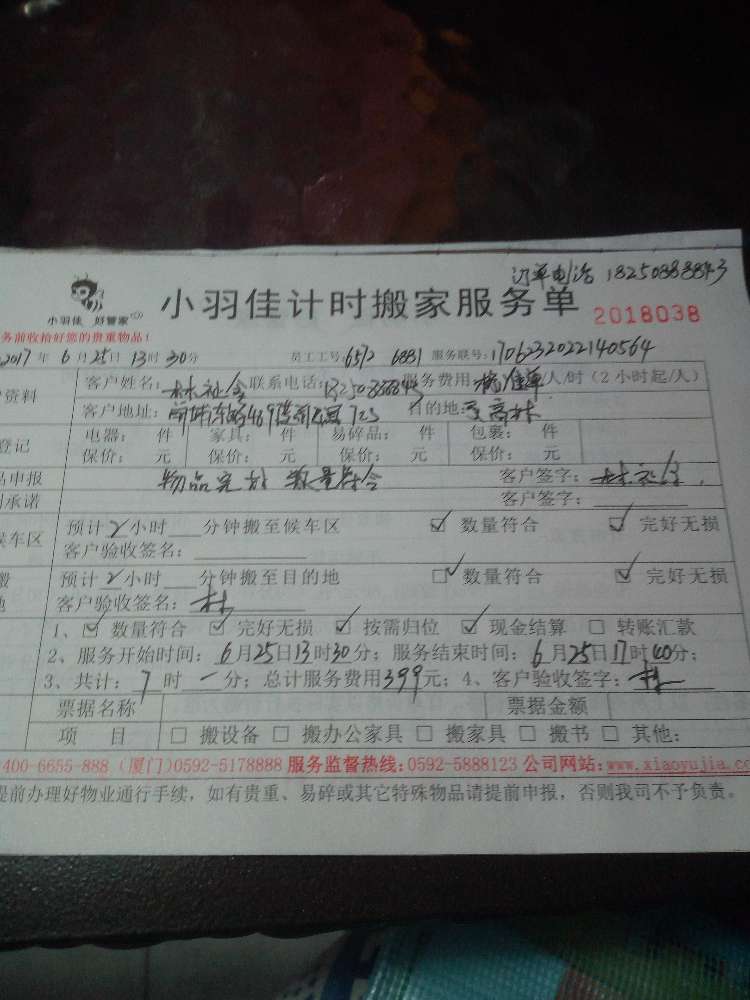 订单电话 18250888843
小羽佳 好管家
小羽佳计时搬家服务单
2018038
务前收拾好您的贵重物品!
2017年6月25日13时30分 员工工号:6572 6881 服务联号:1706232022140564
资料 客户姓名: 联系电话:18250888843 服务费用: 标准单/人/时(2小时起/人)
客户地址: 目的地:
登记 电器: 件 家具: 件 易碎品: 件 包裹: 件
保价: 元 保价: 元 保价: 元 保价: 元
品申报 物品完好 数量符合 客户签字:
承诺 客户签字:
候车区 预计2小时 分钟搬至候车区 ☑ 数量符合 ☑ 完好无损
客户验收签名:
搬 预计2小时 分钟搬至目的地 ☑ 数量符合 ☑ 完好无损
地 客户验收签名:林
1、☑ 数量符合 ☑ 完好无损 ☑ 按需归位 ☑ 现金结算 □ 转账汇款
2、服务开始时间:6月25日13时30分;服务结束时间:6月25日17时40分;
3、共计:7时一分;总计服务费用399元;4、客户验收签字:林
票据名称 票据金额
项 目 □ 搬设备 □ 搬办公家具 □ 搬家具 □ 搬书 □ 其他:
400-6655-888 (厦门)0592-5178888 服务监督热线:0592-5888123 公司网站:www.xiaoyujia.co
提前办理好物业通行手续,如有贵重、易碎或其它特殊物品请提前申报,否则我司不予负责。